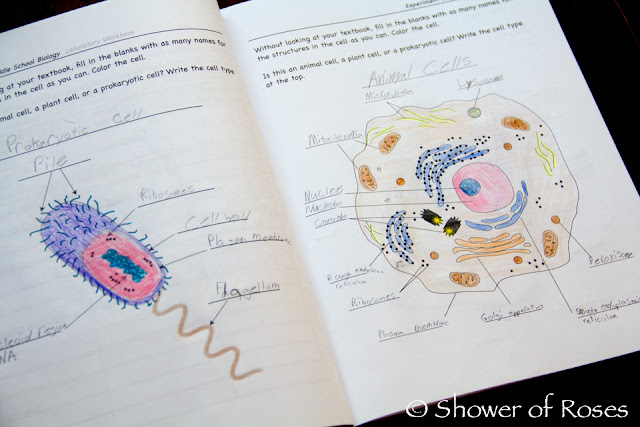 ddle School Biology Laboratory Workbook
ng at your textbook, fill in the blanks with as many names for
s in the cell as you can. Color the cell.
mal cell, a plant cell, or a prokaryotic cell? Write the cell type
Prokaryotic Cell
Pile
Ribosomes
Cell wall
Plasm membrane
Flagellum
cleoid Region
NA
Experiment
Without looking at your textbook, fill in the blanks with as many names
the structures in the cell as you can. Color the cell.
Is this an animal cell, a plant cell, or a prokaryotic cell? Write the cell type
at the top.
Animal Cells
Lysosome
Mitochondria
Nucleus
Rough endoplasmic
reticulum
Ribosomes
Plasma membrane
Golgi apparatus
Smooth endoplasmic
reticulum
Peroxisome
© Shower of Roses